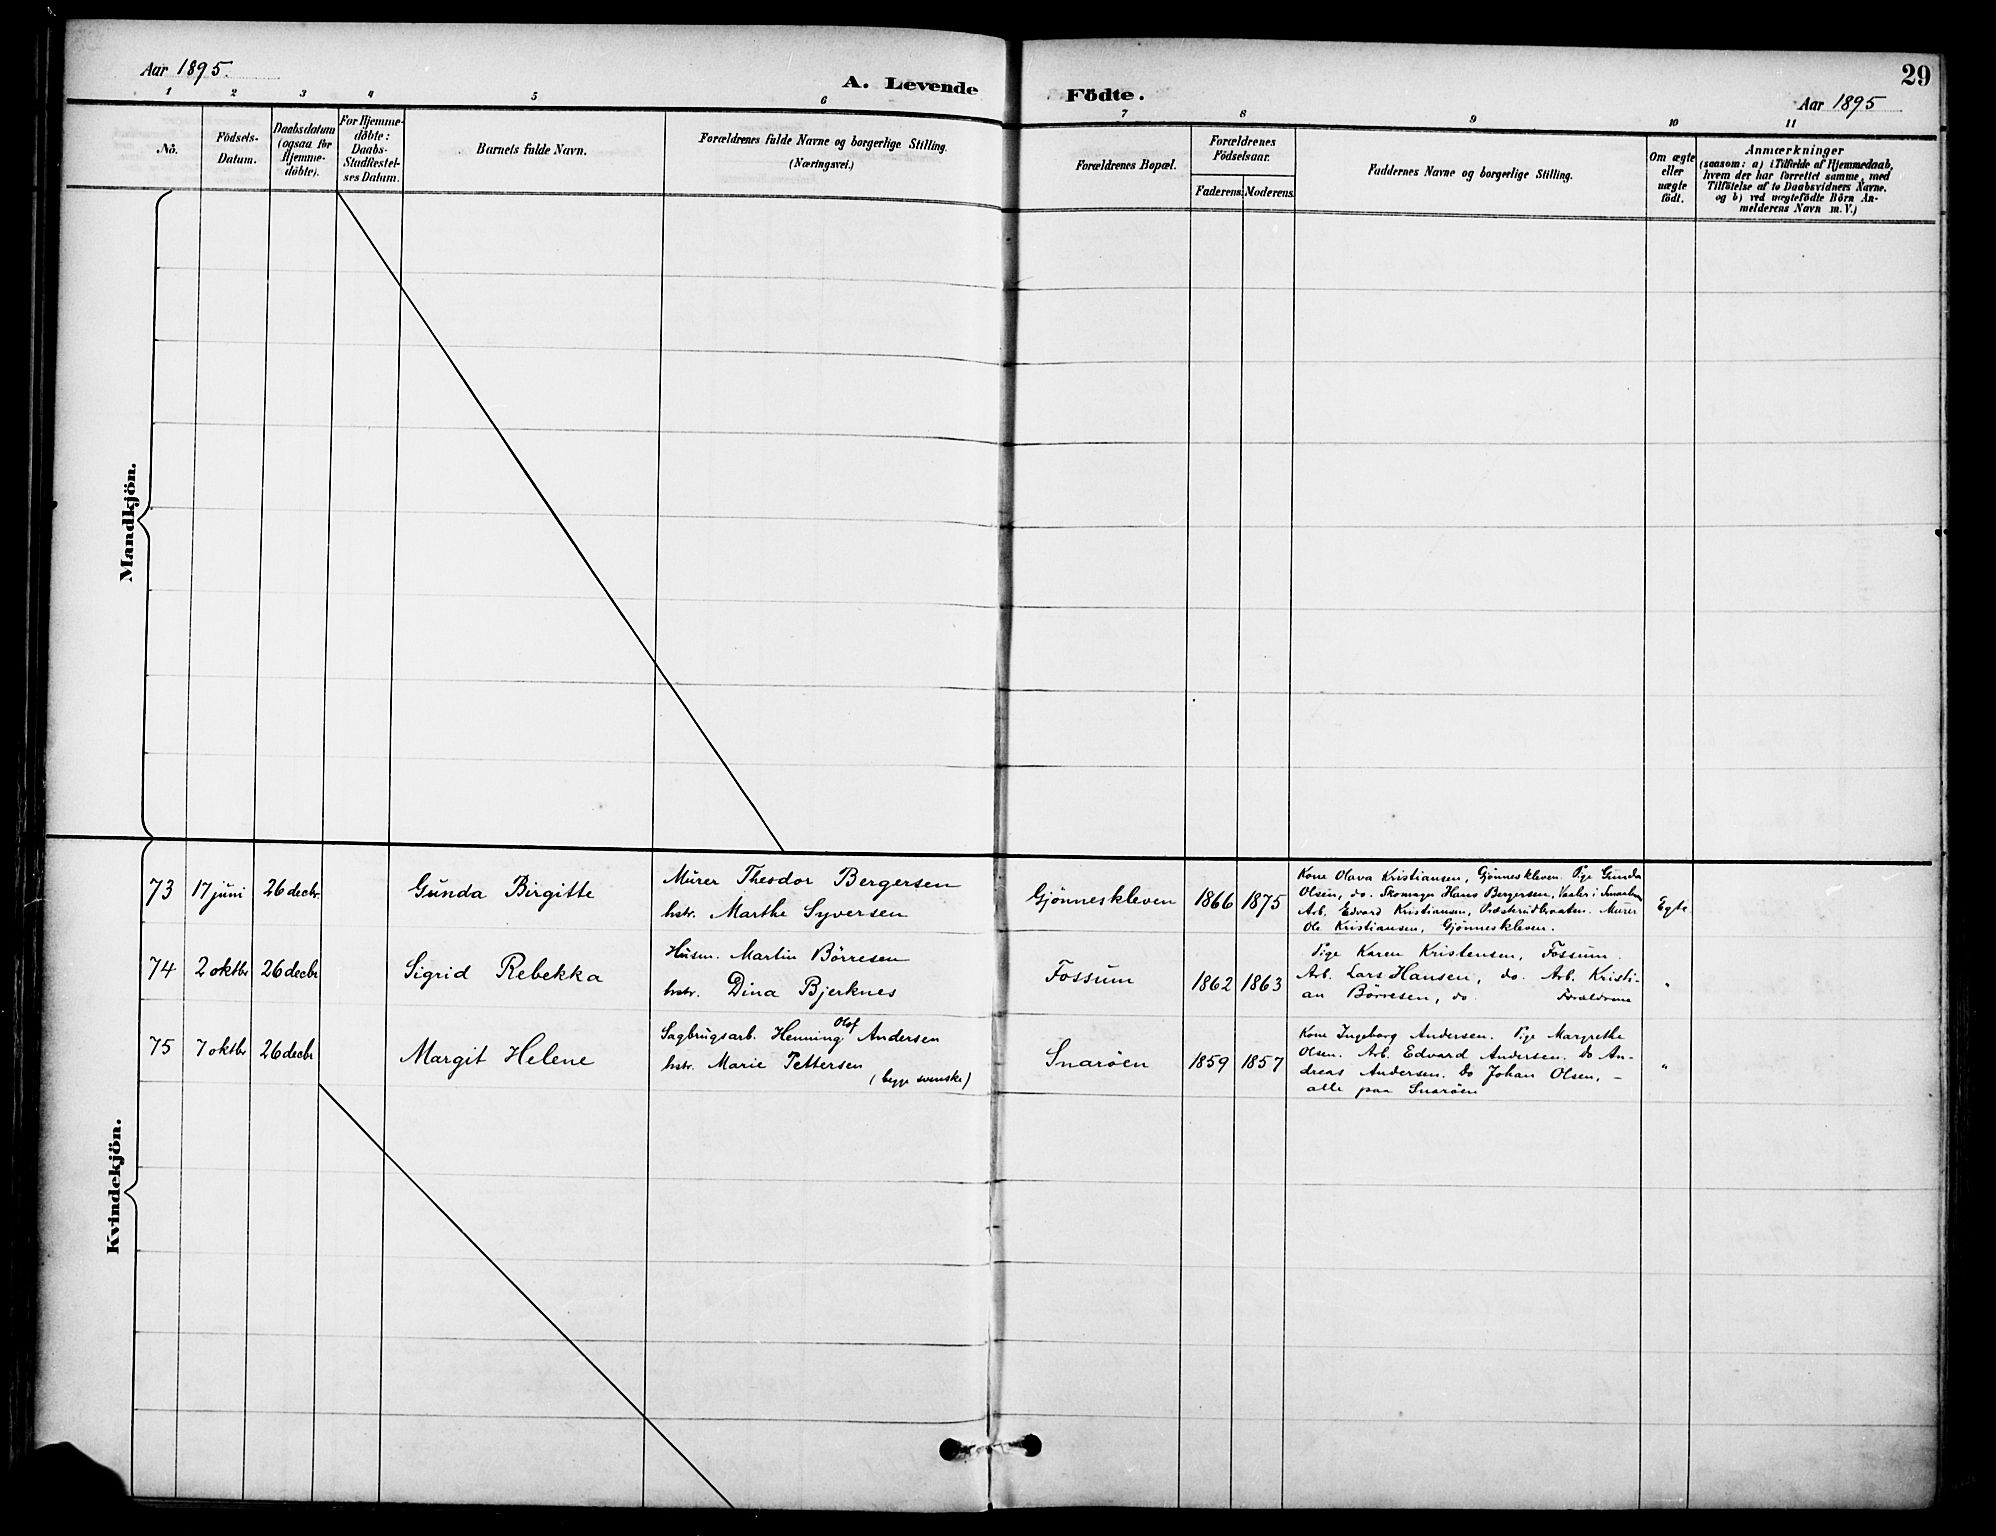 Aar 1895.
A. Levende Födte.
29
Aar 1895
1 2 3 4 5 6 7 8 9 10 11
No.
Födsels-
Datum.
Daabsdatum
(ogsaa for
Hjemme-
döbte).
For Hjemme-
döbte:
Daabs-
Stadfestel-
ses Datum.
Barnets fulde Navn.
Forældrenes fulde Navne og borgerlige Stilling.
(Næringsvei.)
Forældrenes Bopæl.
Forældrenes
Födselsaar.
Faderens. Moderens.
Faddernes Navne og borgerlige Stilling.
Om ægte
eller
uægte
födt.
Anmærkninger
(saasom: a) i Tilfælde af Hjemmedaab,
hvem der har forrettet samme, med
Tilföielse af to Daabsvidners Navne.
og b) ved uægtefödte Börn An-
melderens Navn m. V.)
Mandkjön.
Kvindekjön.
73 17 juni 26 decbr. Gunda Birgitte
Murer Theodor Bergersen
hstr. Marthe Syversen
Gjönneskleven 1866 1875
Kone Olava Kristiansen, Gjönneskleven. Pige Gunda
Olsen, do. Skomager Hans Bergersen, Vaaler i Smaalen
Arb. Edvard Kristiansen, Murer
Ole Kristiansen, Gjönneskleven.
Egte
74 2 oktbr 26 decbr Sigrid Rebekka
Husm. Martin Börresen
hstr. Dina Bjerknes
Fossum 1862 1863
Pige Karen Kristensen, Fossum.
Arb. Lars Hansen, do. Arb. Kristi-
an Börresen, do. Forældrene
"
75 7 oktbr 26 decbr Margit Helene
Sagbrugsarb. Henning Olof Andersen
hstr. Marie Pettersen
(begge svenske)
Snaröen 1859 1857
Kone Ingeborg Andersen. Pige Margrethe
Olsen. Arb. Edvard Andersen. Do An-
dreas Andersen. Do Johan Olsen, -
alle paa Snaröen
"